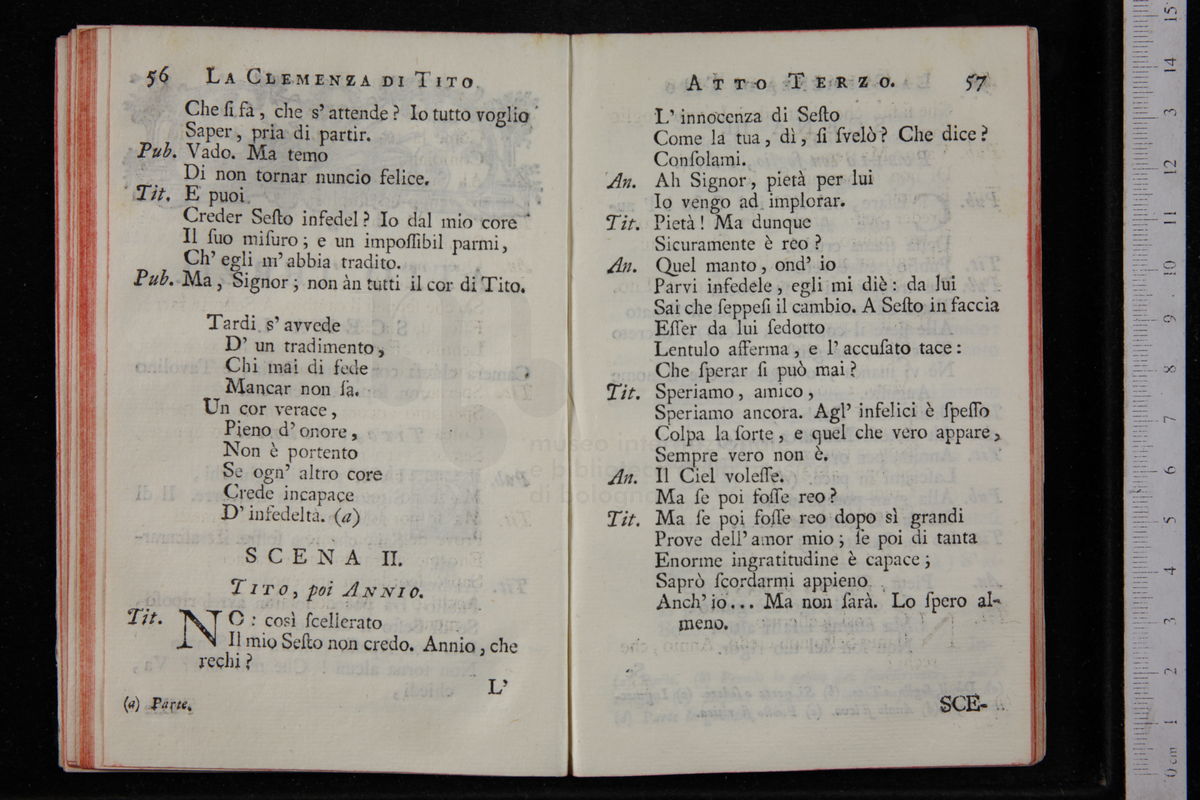 56 LA CLEMENZA DI TITO
Che ſi fa, che s' attende? Io tutto voglio
Saper, pria di partir.
Pub. Vado. Ma temo
Di non tornar nuncio felice.
Tit. E puoi
Creder Seſto infedel? Io dal mio core
Il ſuo miſuro; e un impoſſibil parmi,
Ch' egli m' abbia tradito.
Pub. Ma, Signor; non àn tutti il cor di Tito.
Tardi s' avvede
D' un tradimento,
Chi mai di fede
Mancar non ſa.
Un cor verace,
Pieno d' onore,
Non è portento
Se ogn' altro core
Crede incapace
D' infedeltà. (a)
SCENA II.
TITO, poi ANNIO.
Tit. NO: così ſcellerato
Il mio Seſto non credo. Annio, che
rechi?
L'
(a) Parte.
ATTO TERZO. 57
L' innocenza di Seſto
Come la tua, dì, ſi ſvelò? Che dice?
Conſolami.
An. Ah Signor, pietà per lui
Io vengo ad implorar.
Tit. Pietà! Ma dunque
Sicuramente è reo?
An. Quel manto, ond' io
Parvi infedele, egli mi diè: da lui
Sai che ſeppeſi il cambio. A Seſto in faccia
Eſſer da lui ſedotto
Lentulo afferma, e l' accuſato tace:
Che ſperar ſi può mai?
Tit. Speriamo, amico,
Speriamo ancora. Agl' infelici è ſpeſſo
Colpa la ſorte, e quel che vero appare,
Sempre vero non è.
An. Il Ciel voleſſe.
Ma ſe poi foſſe reo?
Tit. Ma ſe poi foſſe reo dopo sì grandi
Prove dell' amor mio; ſe poi di tanta
Enorme ingratitudine è capace;
Saprò ſcordarmi appieno
Anch' io... Ma non ſarà. Lo ſpero al-
meno.
SCE-